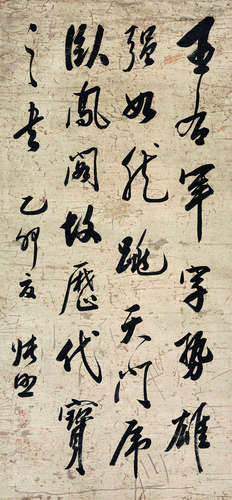 王右軍字勢雄
強如龍跳天門虎
臥鳳閣故歷代寶
之書 乙卯夏